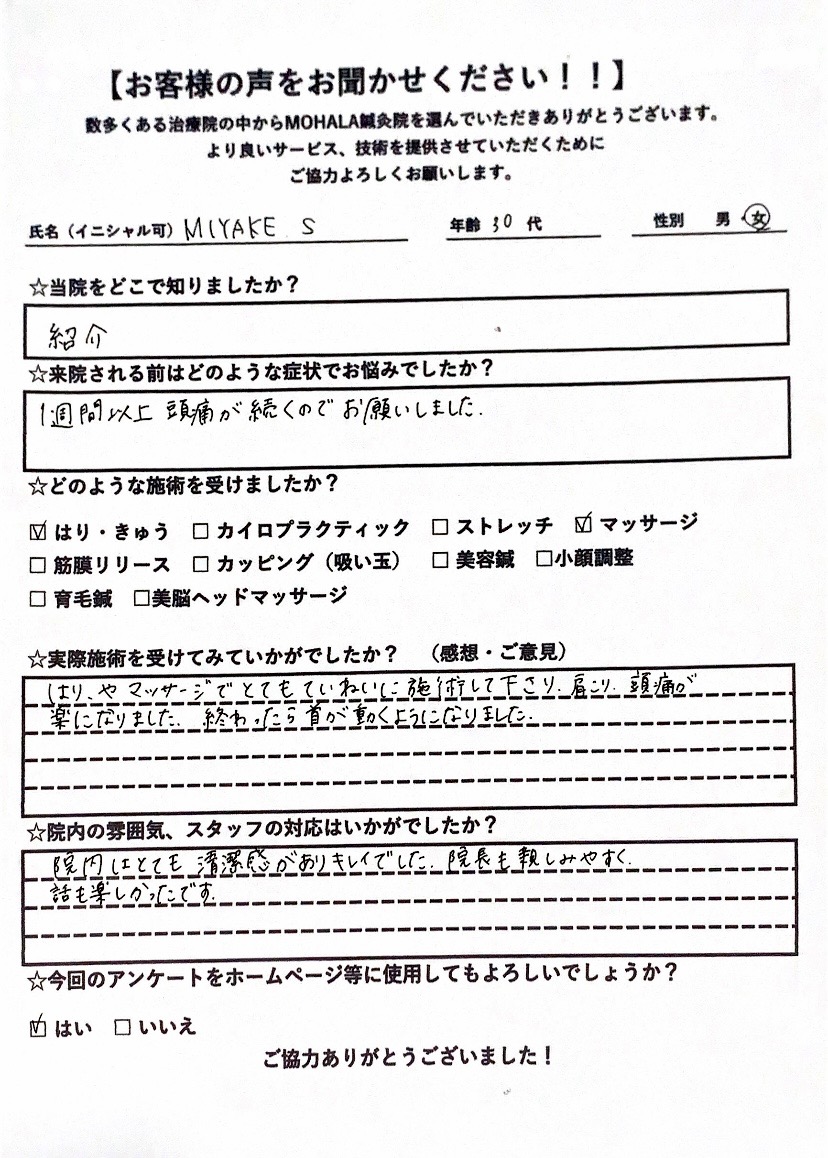 【お客様の声をお聞かせください！！】
数多くある治療院の中からMOHALA鍼灸院を選んでいただきありがとうございます。
より良いサービス、技術を提供させていただくために
ご協力よろしくお願いします。
氏名（イニシャル可） MIYAKE S 年齢 30 代 性別 男・女
☆当院をどこで知りましたか？
紹介
☆来院される前はどのような症状でお悩みでしたか？
1週間以上 頭痛が続くのでお願いしました.
☆どのような施術を受けましたか？
☑ はり・きゅう □ カイロプラクティック □ ストレッチ ☑ マッサージ
□ 筋膜リリース □ カッピング（吸い玉） □ 美容鍼 □小顔調整
□ 育毛鍼 □美脳ヘッドマッサージ
☆実際施術を受けてみていかがでしたか？ （感想・ご意見）
はり、やマッサージでとてもていねいに施術して下さり、肩こり、頭痛が
楽になりました. 終わったら首が動くようになりました.
☆院内の雰囲気、スタッフの対応はいかがでしたか？
院内はとても清潔感がありキレイでした. 院長も親しみやすく.
話も楽しかったです.
☆今回のアンケートをホームページ等に使用してもよろしいでしょうか？
☑ はい □ いいえ
ご協力ありがとうございました！